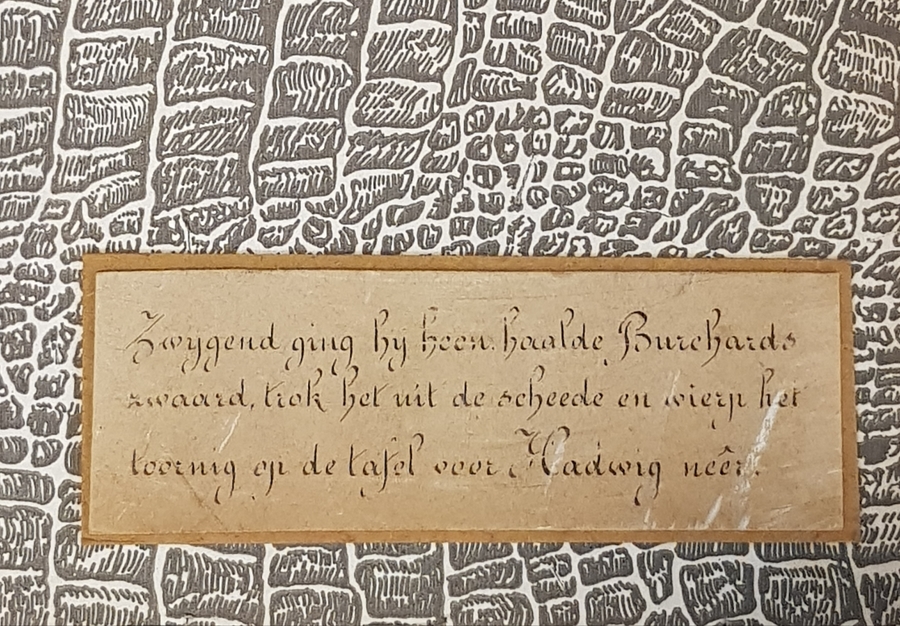 Zwygend ging hy heen. haalde Burchards
zwaard, trok het uit de scheede en wierp het
toornig op de tafel voor Hadwig neêr.